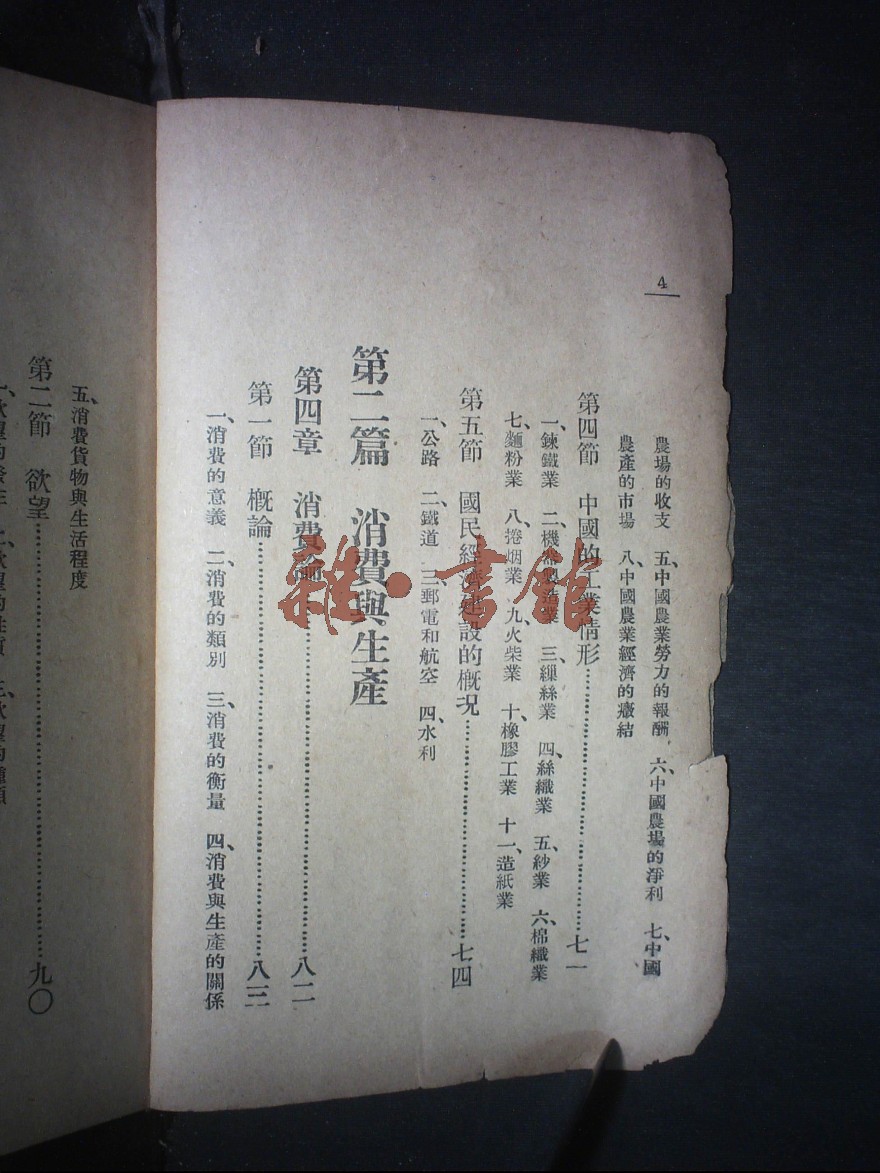 4
農場的收支 五、中國農業勞力的報酬 六、中國農場的淨利 七、中國
農產的市場 八、中國農業經濟的癥結
第四節 中國的工業情形……七一
一、鍊鐵業 二、機器製造業 三、繅絲業 四、絲織業 五、紗業 六、棉織業
七、麵粉業 八、捲烟業 九、火柴業 十、橡膠工業 十一、造紙業
第五節 國民經濟建設的概況……七四
一、公路 二、鐵道 三、郵電和航空 四、水利
第二篇 消費與生產
第四章 消費論……八二
第一節 概論……八三
一、消費的意義 二、消費的類別 三、消費的衡量 四、消費與生產的關係
五、消費貨物與生活程度
第二節 欲望……九〇
雜·書館